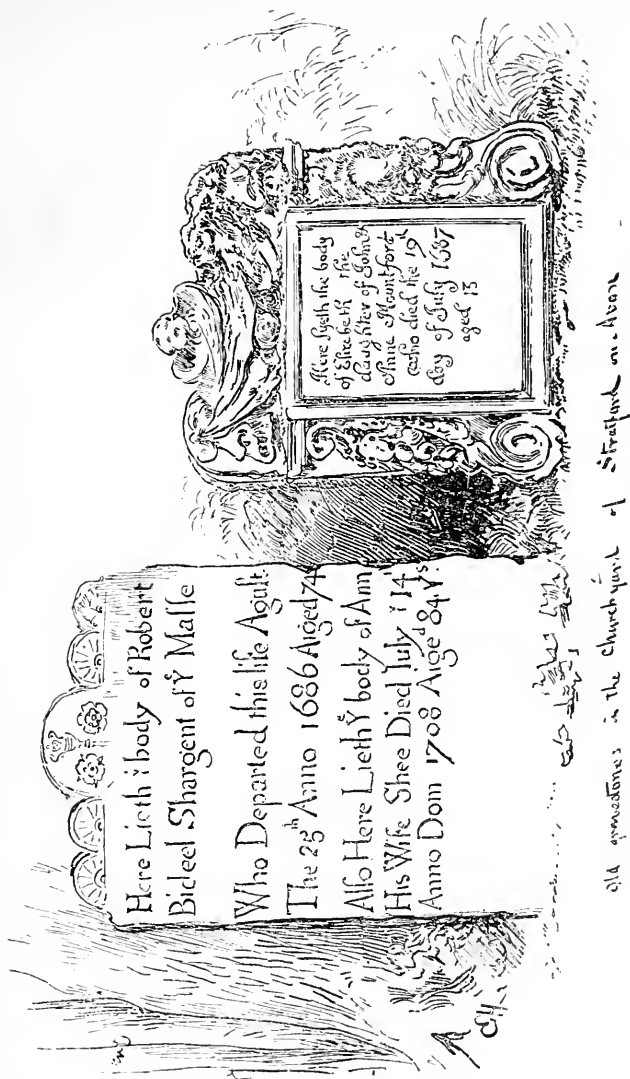 Here Lieth yᵉ body of Robert
Bideel Shargent of yᵉ Masse
Who Departed this life Agust
The 25ᵗʰ Anno 1686 Aiged 74
Alſo Here Lieth yᵉ body of Ann
His Wife Shee Died July yᵉ 14
Anno Dom 1708 Aigeᵈ 84 Yˢ
Here lyeth the body
of Elizabeth the
daughter of John &
Anne Mountford
who died the 19ᵗʰ
day of July 1687
aged 13
old gravestones in the Churchyard of Stratford on Avon